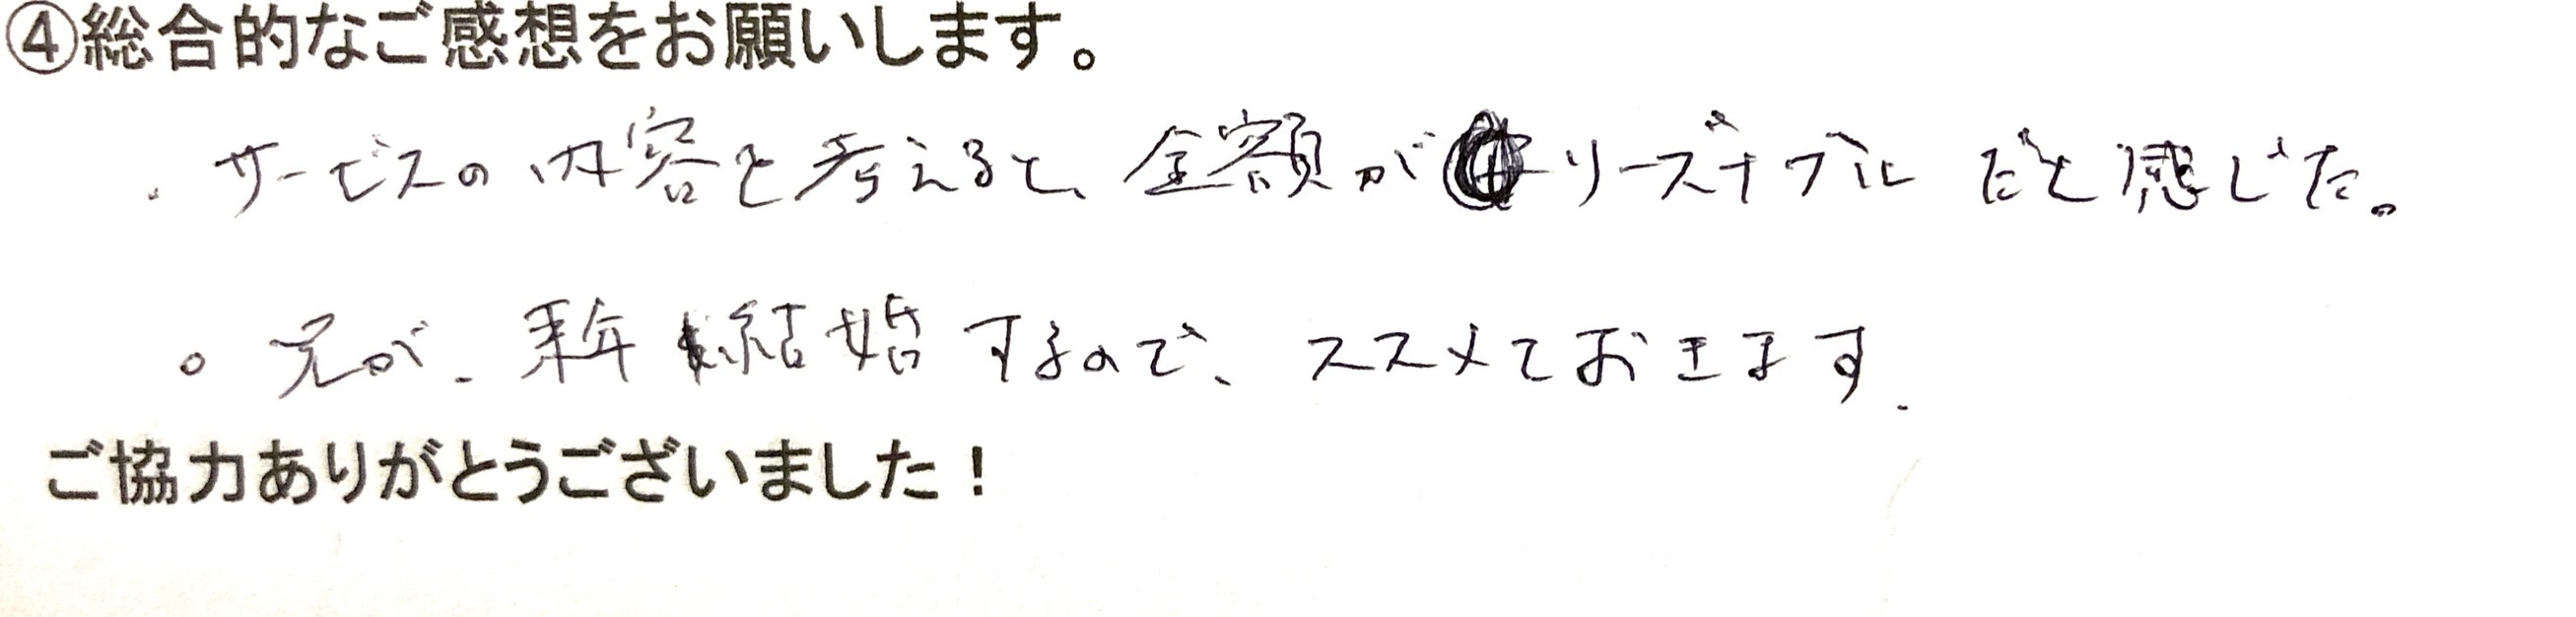 ④総合的なご感想をお願いします。
・サービスの内容を考えると、金額がリーズナブルだと感じた。
○兄が、来年結婚するので、ススメておきます.
ご協力ありがとうございました！